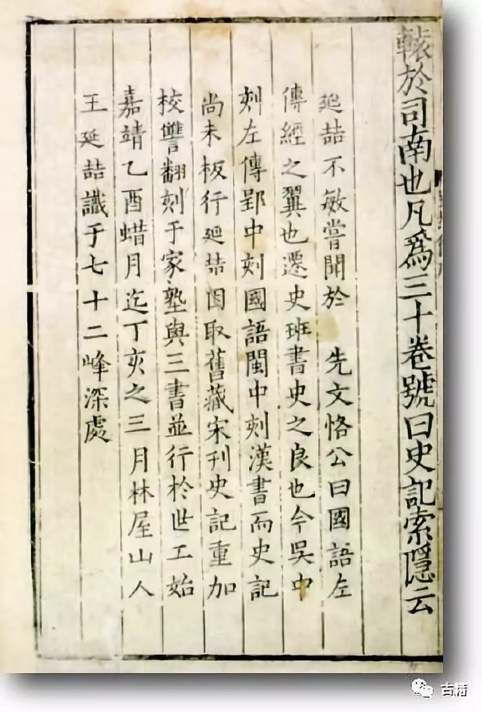 轅於司南也凡爲三十卷號曰史記索隱云
延喆不敏嘗聞於 先文恪公曰國語左
傳經之翼也遷史班書史之良也今吳中
刻左傳郢中刻國語閩中刻漢書而史記
尚未板行延喆因取舊藏宋刊史記重加
校讐翻刻于家塾與三書並行於世工始
嘉靖乙酉蜡月迄丁亥之三月林屋山人
王延喆識于七十二峰深處
古籍